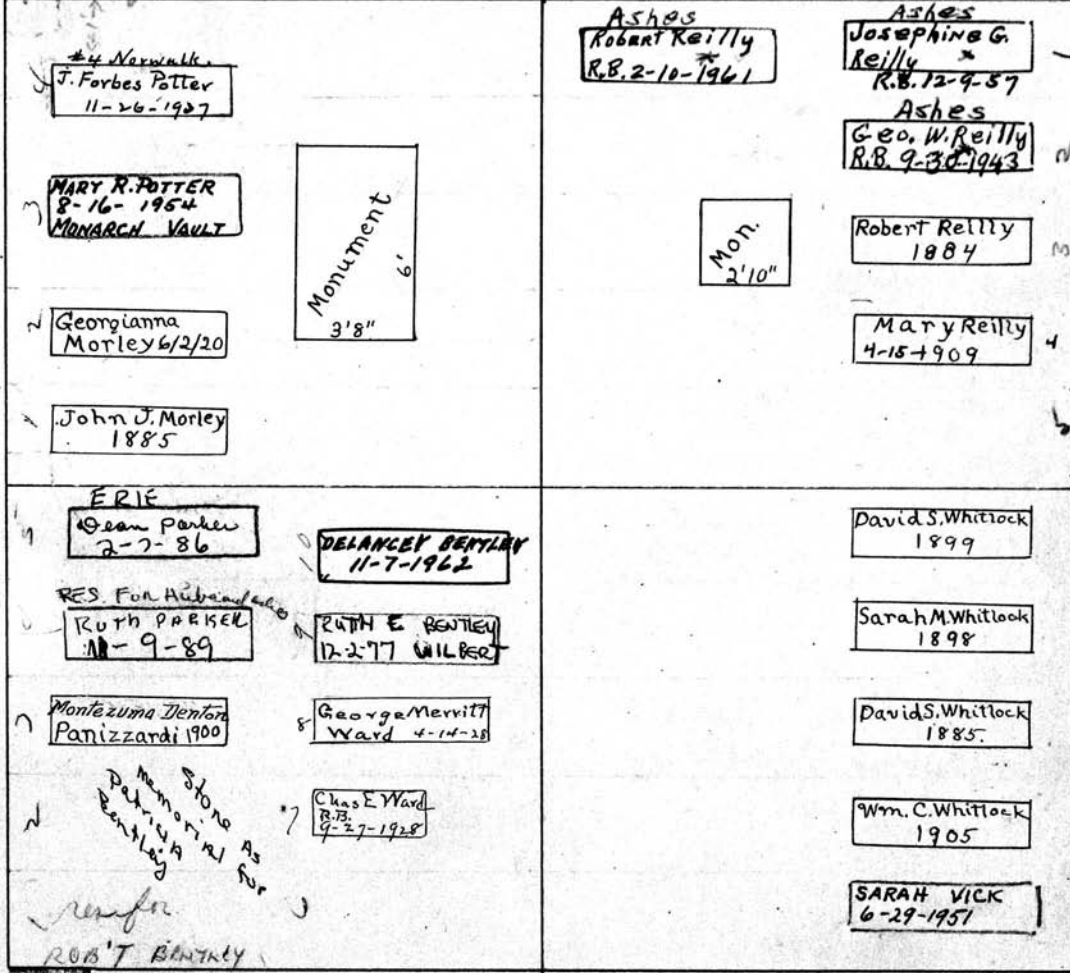 #4 Norwalk
4
J. Forbes Potter
11-26-1927
3
MARY R. POTTER
8-16-1954
MONARCH VAULT
2
Georgianna
Morley 6/2/20
1
John J. Morley
1885
Monument
6'
3'8"
Ashes
Robert Reilly
R.B. 2-10-1961
Ashes
Josephine G.
Reilly
R.B. 12-9-57
1
Ashes
Geo. W. Reilly
R.B. 9-30-1943
2
Mon.
2'10"
Robert Reilly
1884
3
Mary Reilly
4-15-1909
4
5
ERIE
5
Dean Parker
2-7-86
RES. For Husband
RUTH PARKER
- 9-89
3
Montezuma Denton
Panizzardi 1900
2
Stone As
Memorial for
Patricia
Bentley
res for
ROB'T BENTLEY
10
DELANCEY BENTLEY
11-7-1962
9
RUTH E BENTLEY
12-2-77 WILBERT
8
George Merritt
Ward 4-14-28
7
Chas E Ward
R.B.
9-27-1928
David S. Whitlock
1899
Sarah M. Whitlock
1898
David S. Whitlock
1885.
Wm. C. Whitlock
1905
SARAH VICK
6-29-1951